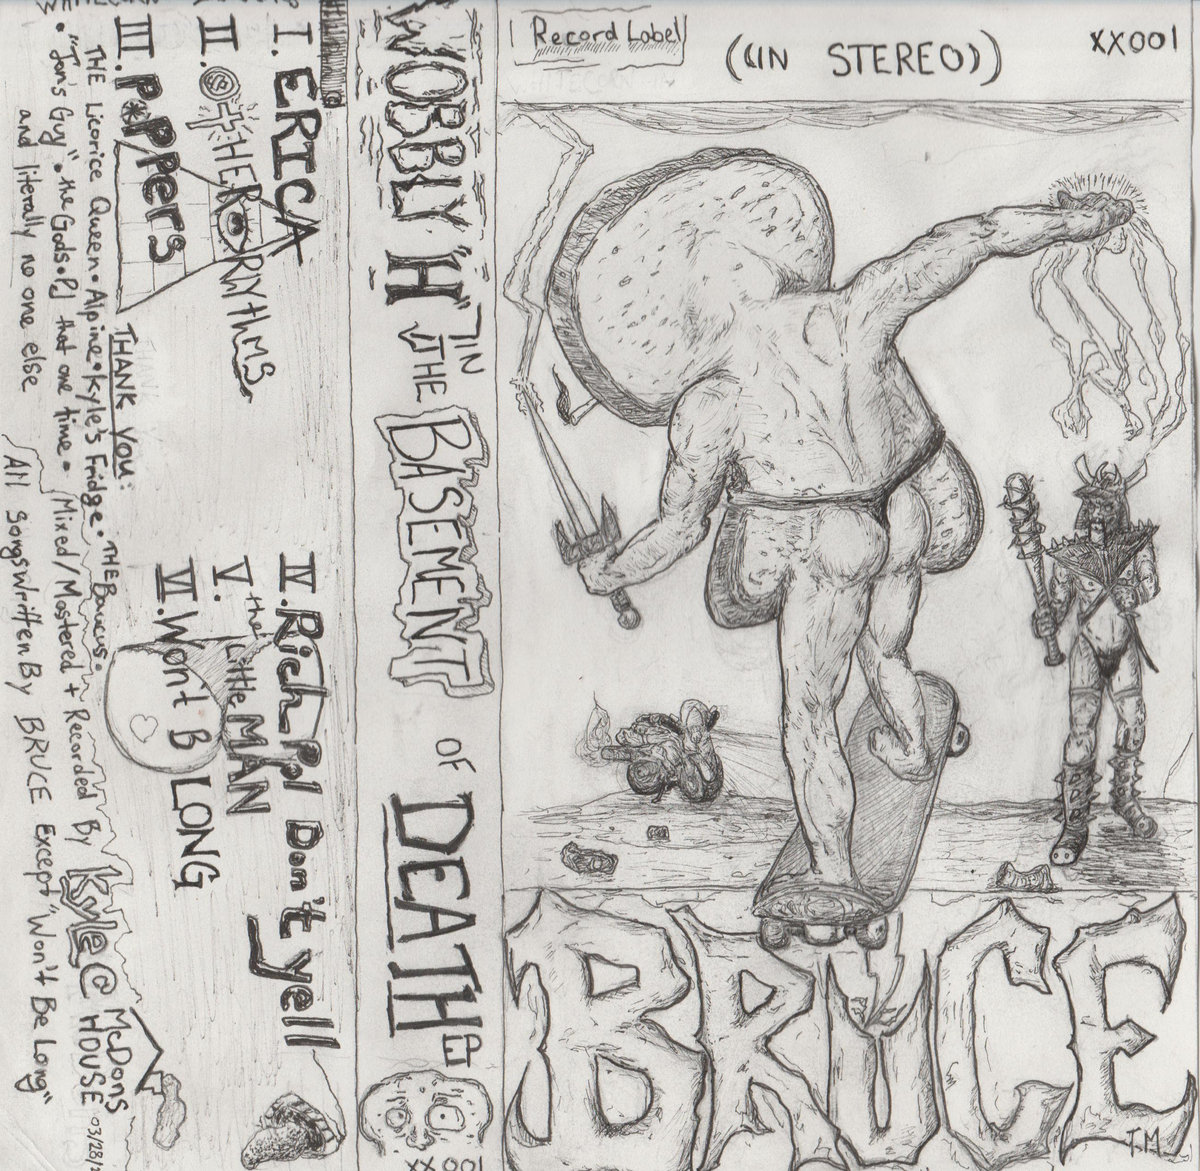 Record Label
((IN STEREO))
XX001
BRUCE
T.M
WOBBLY "H" IN THE BASEMENT OF DEATH
XX 001
I. ERICA
II. OTHER RHYTHMS
III. P*PPERS
IV. Rich Pal Don't yell
V. the Little MAN
VI. Won't B LONG
THANK YOU:
THE Licorice Queen • Alpine • Kyle's Fridge • THE Baucus •
"Jon's Guy" • the Gods • PJ that one time • Mixed/Mastered + Recorded By Kyle @ McDons HOUSE 03/28/
and literally no one else
All songs written By BRUCE Except "Won't Be Long"